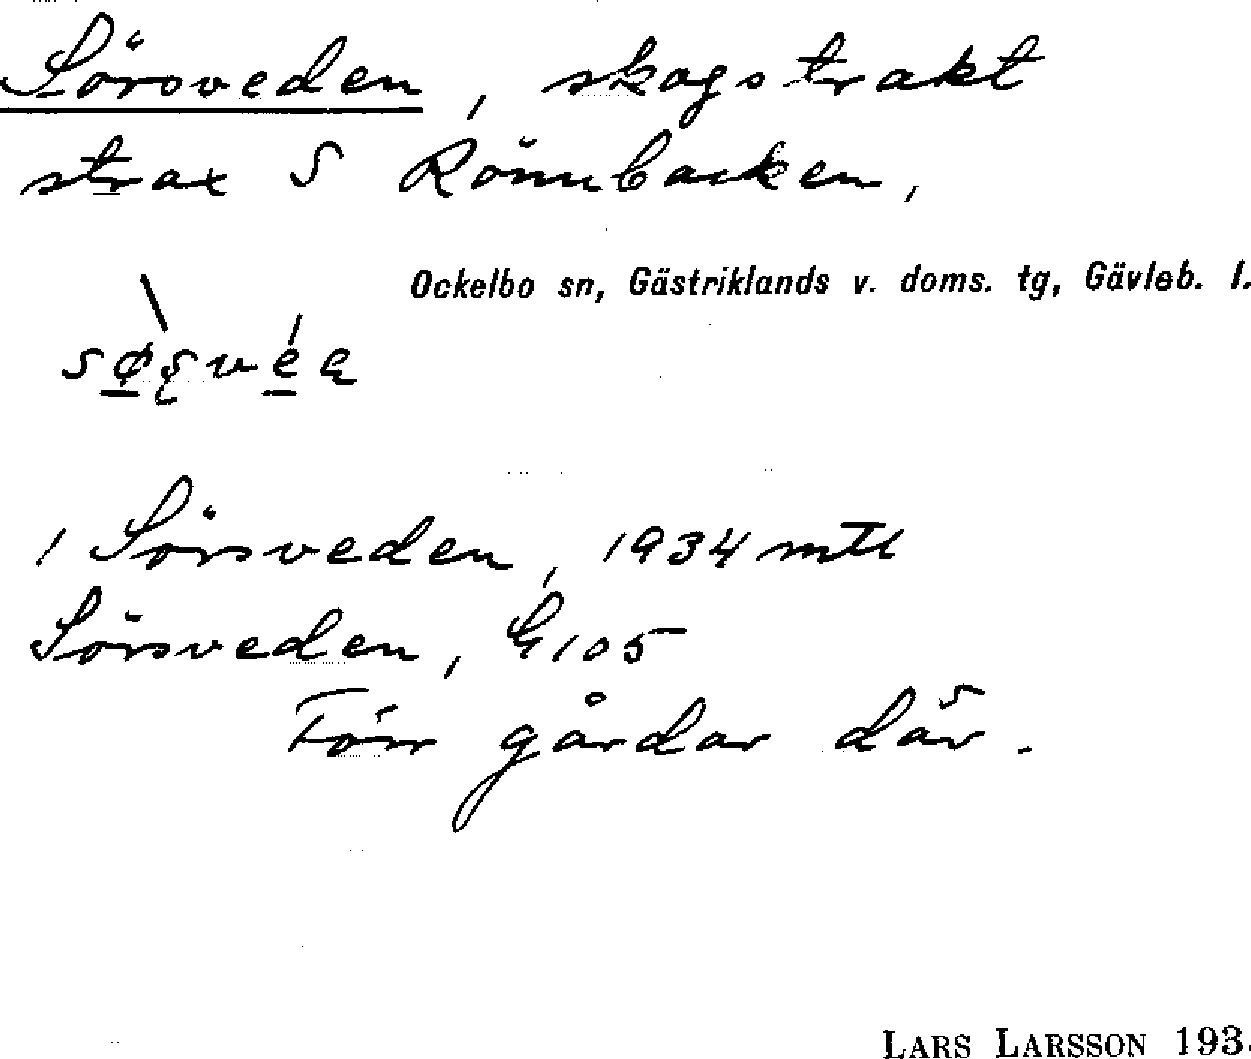 Sörsveden, skogstrakt
strax S Rönnbacken,
Ockelbo sn, Gästriklands v. doms. tg, Gävleb. l.
1 Sörsveden, 1934 mtl
Sörsveden, G105
Förr gårdar där.
LARS LARSSON 193